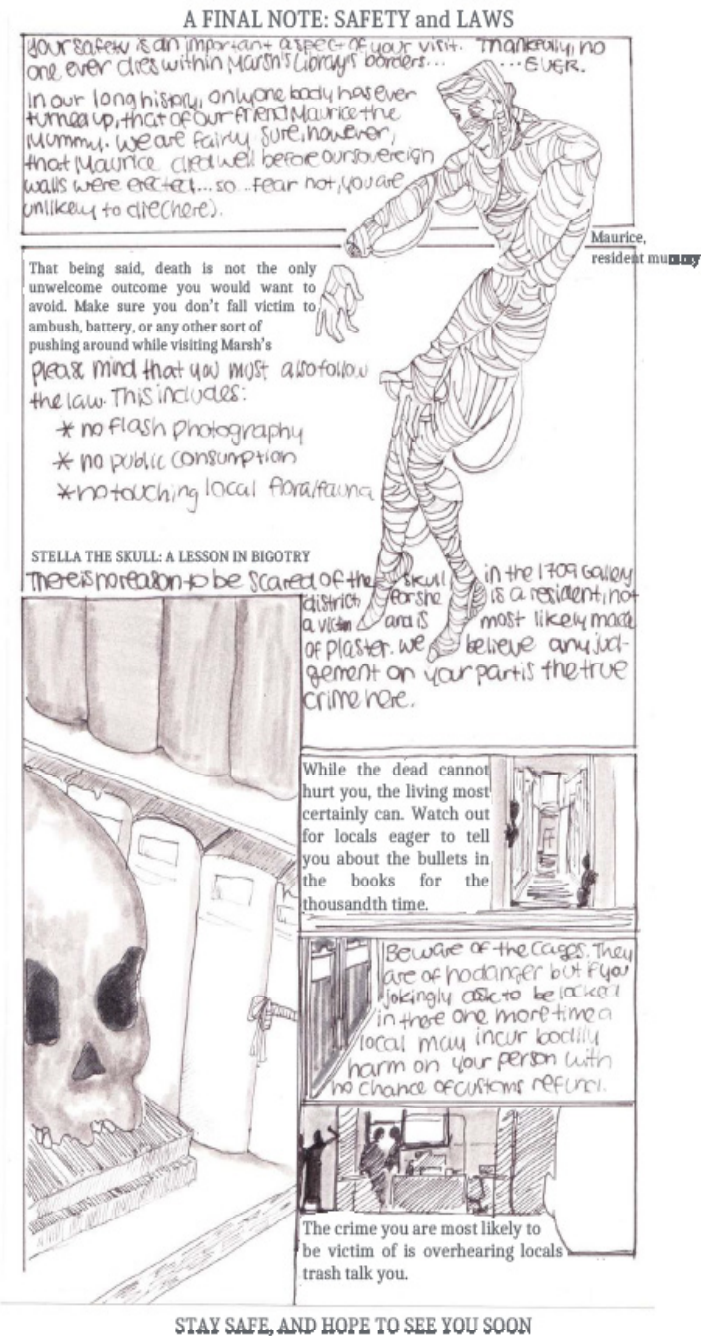 A FINAL NOTE: SAFETY and LAWS
Your safety is an important aspect of your visit. Thankfully, no
one ever dies within Marsh's Library's borders... ...EVER.
In our long history, only one body has ever
turned up, that of our friend Maurice the
Mummy. We are fairly sure, however,
that Maurice died well before our sovereign
walls were erected... so.. fear not, you are
unlikely to die (here).
Maurice,
resident mummy
That being said, death is not the only
unwelcome outcome you would want to
avoid. Make sure you don't fall victim to
ambush, battery, or any other sort of
pushing around while visiting Marsh's
please mind that you must also follow
the law. This includes:
* no flash photography
* no public consumption
* no touching local flora/fauna
STELLA THE SKULL: A LESSON IN BIGOTRY
There is no reason to be scared of the skull in the 1709 Galley
district for she is a resident, not
a victim and is most likely made
of plaster. We believe any jud-
gement on your part is the true
crime here.
While the dead cannot
hurt you, the living most
certainly can. Watch out
for locals eager to tell
you about the bullets in
the books for the
thousandth time.
Beware of the cages. They
are of no danger but if you
jokingly ask to be locked
in there one more time a
local may incur bodily
harm on your person with
no chance of customs refund.
The crime you are most likely to
be victim of is overhearing locals
trash talk you.
STAY SAFE, AND HOPE TO SEE YOU SOON